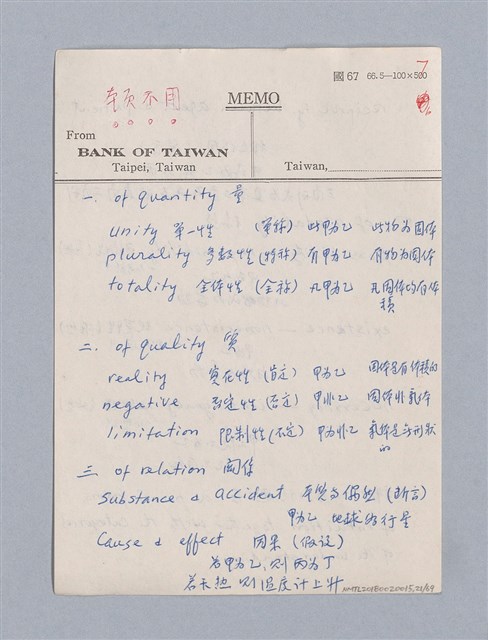 國 67 66.5—100×500
7
本頁不用
MEMO
From
BANK OF TAIWAN
Taipei, Taiwan
Taiwan,
一. of quantity 量
unity 單一性 (單称) 此甲为乙 此物为固体
plurality 多数性 (特称) 有甲为乙 有物为固体
totality 全体性 (全称) 凡甲为乙 凡固体均有体
積
二. of quality 質
reality 实在性 (肯定) 甲为乙 固体是有体積的
negative 否定性 (否定) 甲非乙 固体非氣体
limitation 限制性 (不定) 甲为非乙 氣体是无形狀
的
三 of relation 関係
Substance & accident 本质与偶然 (断言)
甲为乙 地球为行星
Cause & effect 因果 (假设)
若甲为乙, 则丙为丁
若天热 则温度计上升
NMTL20180020015,21/69